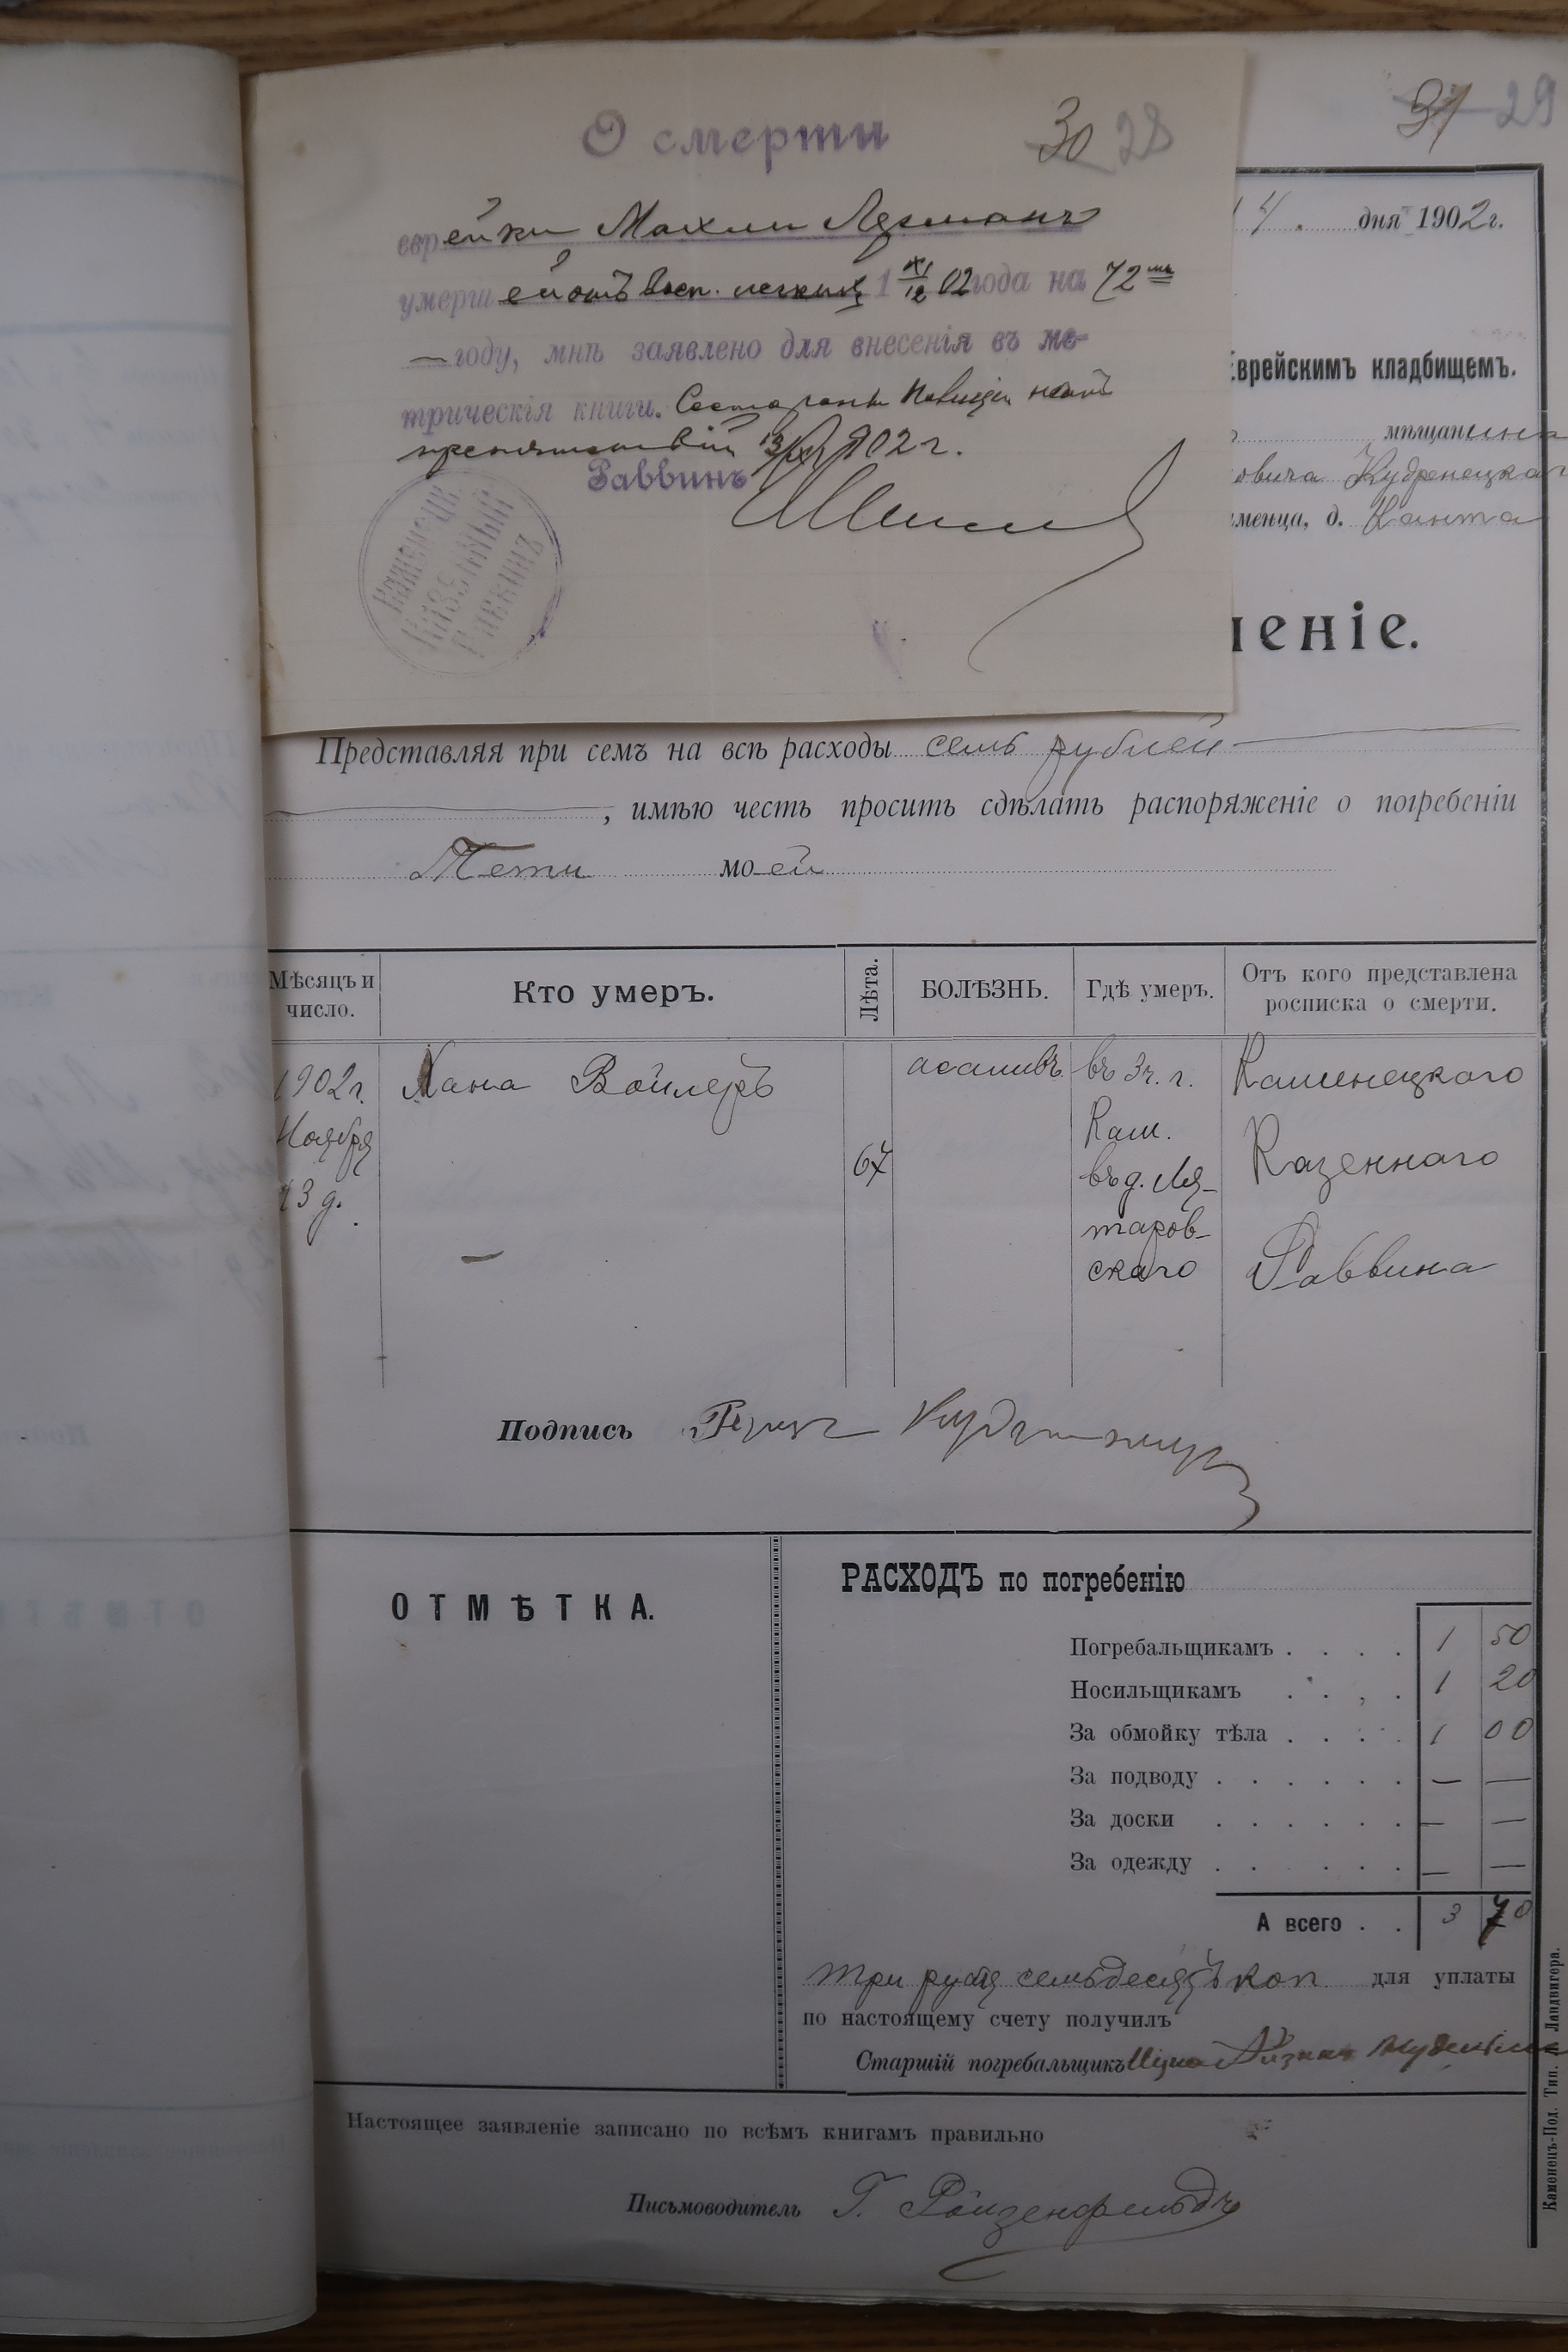 О смерти
30 28
еврейки Махли Лерманъ
умершей отъ восп. легкихъ 1 XI/12 02 года на 72
году, мнѣ заявлено для внесенія въ ме-
трическія книги. Со стороны полиціи нѣтъ
препятствій 13/XI 902 г.
Раввинъ
Каменецк
Казенный
Раввинъ
31 29
14. дня 1902 г.
Еврейскимъ кладбищемъ.
мѣщанина
овича Кудренецкаг
менца, д. Канта
леніе.
Представляя при семъ на всѣ расходы семь рублей
, имѣю честь просить сдѣлать распоряженіе о погребеніи
Тети моей
Мѣсяцъ и число.
Кто умеръ.
Лѣта.
БОЛѢЗНЬ.
Гдѣ умеръ.
Отъ кого представлена росписка о смерти.
1902 г.
Ноября
13 д.
Хана Войлеръ
67
въ 3 ч. г.
Кам.
въ д. Ля-
таров-
скаго
Каменецкаго
Казеннаго
Раввина
Подпись
ОТМѢТКА.
РАСХОДЪ по погребенію
Погребальщикамъ . . . . 1 50
Носильщикамъ . . . . 1 20
За обмойку тѣла . . . . 1 00
За подводу . . . . . . — —
За доски . . . . . . — —
За одежду . . . . . . — —
А всего . . 3 70
три рубля семьдесятъ коп для уплаты
по настоящему счету получилъ
Старшій погребальщикъ
Настоящее заявленіе записано по всѣмъ книгамъ правильно
Письмоводитель Г. Ройзенфельдъ
Каменецъ-Под. Тип. Ландвигера.